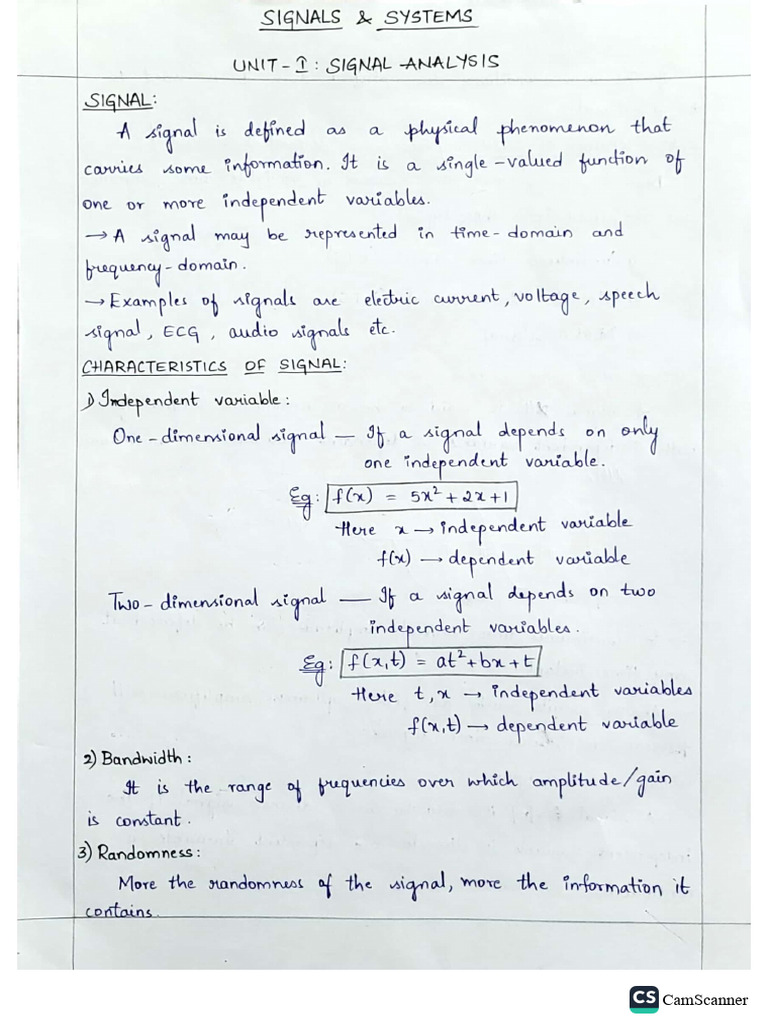 SIGNALS & SYSTEMS
UNIT-I: SIGNAL ANALYSIS
SIGNAL:
A signal is defined as a physical phenomenon that
carries some information. It is a single-valued function of
one or more independent variables.
→ A signal may be represented in time-domain and
frequency-domain.
→ Examples of signals are electric current, voltage, speech
signal, ECG, audio signals etc.
CHARACTERISTICS OF SIGNAL:
1) Independent variable:
One-dimensional signal — If a signal depends on only
one independent variable.
Eg: f(x) = 5x² + 2x + 1
Here x → independent variable
f(x) → dependent variable
Two-dimensional signal — If a signal depends on two
independent variables.
Eg: f(x,t) = at² + bx + t
Here t, x → independent variables
f(x,t) → dependent variable
2) Bandwidth:
It is the range of frequencies over which amplitude/gain
is constant.
3) Randomness:
More the randomness of the signal, more the information it
contains.
CS CamScanner